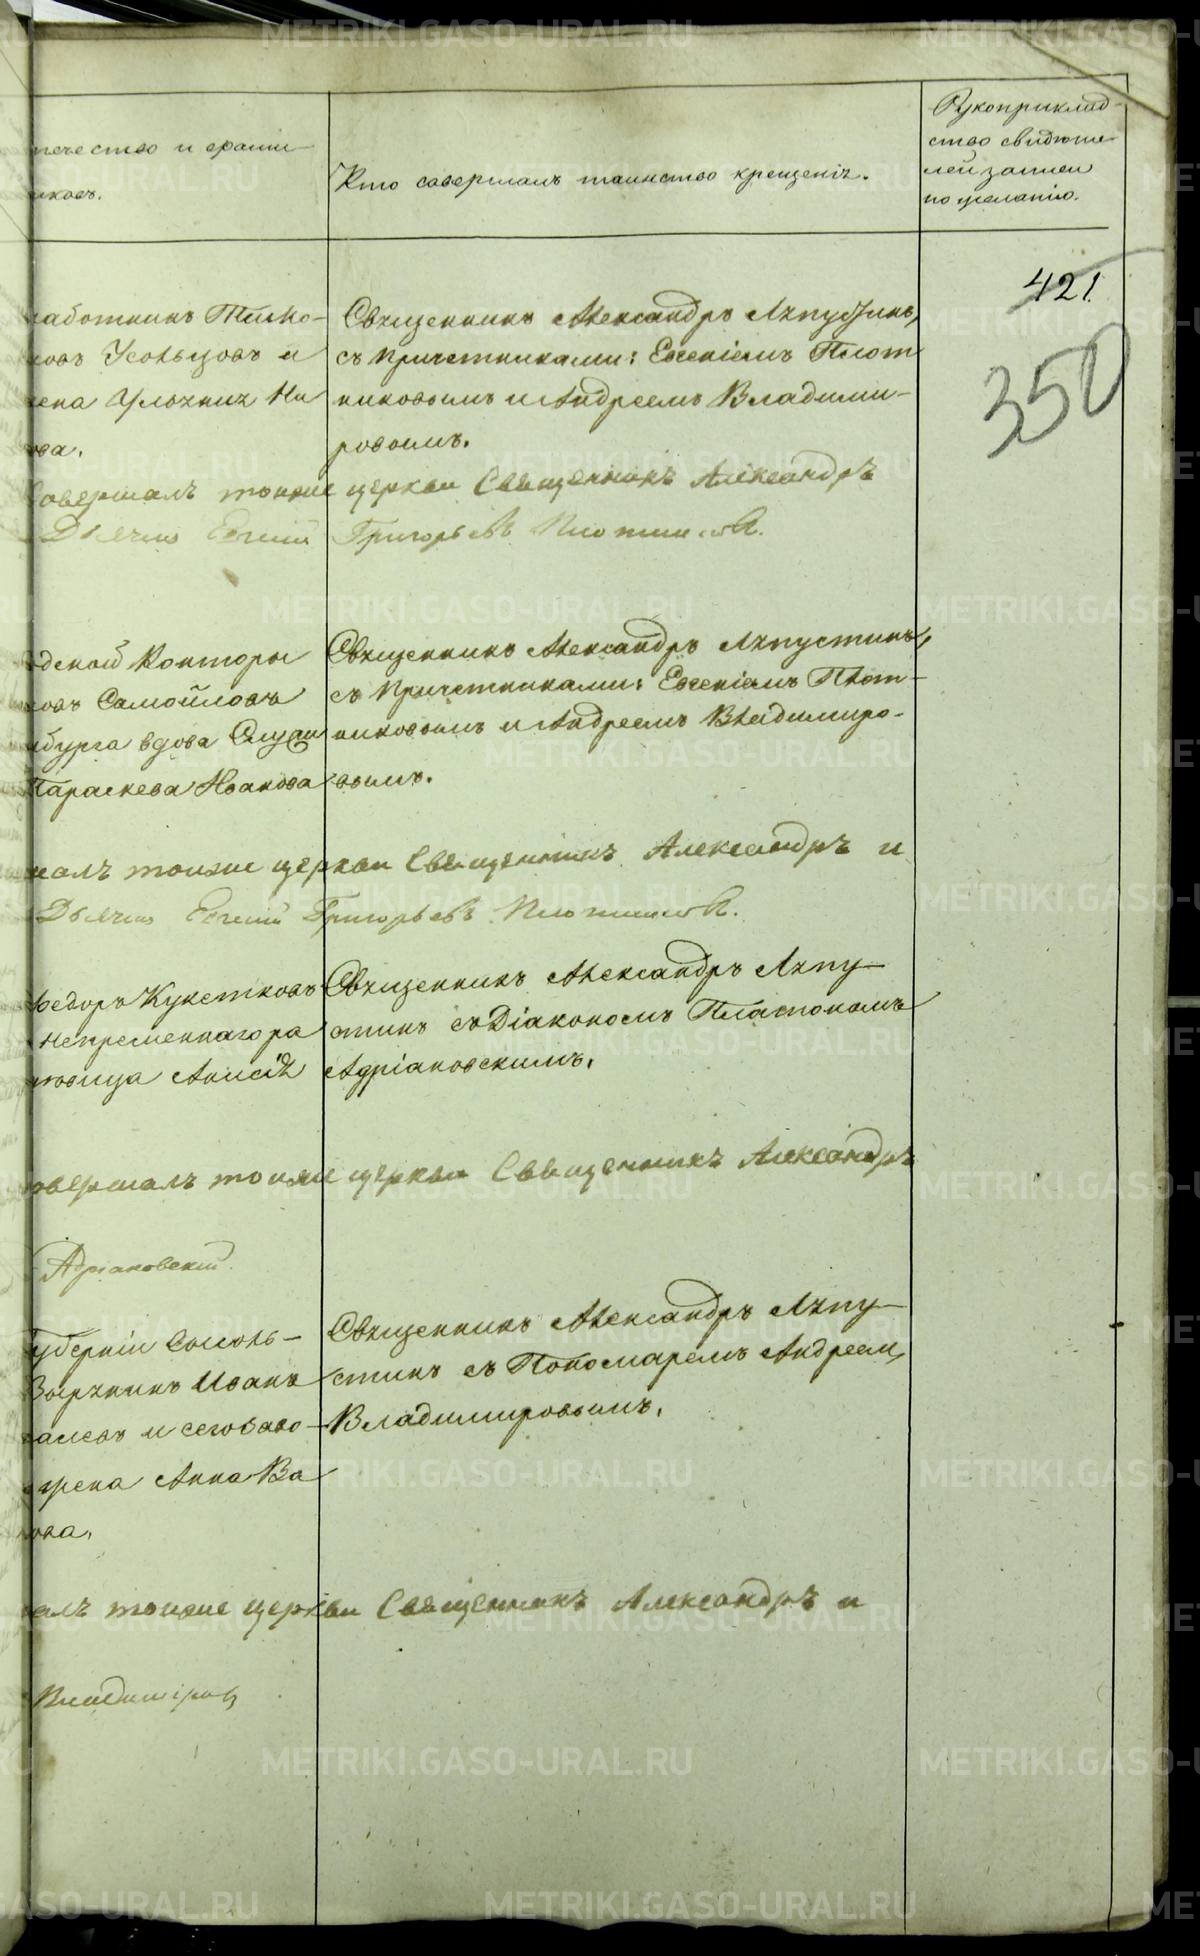 METRIKI.GASO-URAL.RU
Рукоприклад-
ство свидѣте
лей записи
по желанію.
течество и фами-
иковъ.
Кто совершалъ таинство крещенія.
421.
350
работникъ Тихо-
новъ Усольцовъ и
жена Ульянія Ни
ова.
Священникъ Александръ Ляпустинъ,
съ причетниками: Евгеніемъ Плот
никовымъ и Андреемъ Владими-
ровымъ.
Совершалъ тоиже церкви Священникъ Александръ
Дьячекъ Евгеній Григорьевъ Плотниковъ.
одской Конторы
ковъ Самойловъ
нбурга вдова
Параскева Иванова
Священникъ Александръ Ляпустинъ,
съ Причетниками: Евгеніемъ Плот-
никовымъ и Андреемъ Владимиро-
вымъ.
шалъ тоиже церкви Священникъ Александръ и
Дьячекъ Евгеній Григорьевъ Плотниковъ.
Федоръ
непременнаго ра
Анисія
Священникъ Александръ Ляпу-
стинъ съ Діакономъ Платономъ
Адріановскимъ.
овершалъ тоиже церкви Священникъ Александръ
Адріановскій.
губерніи Соколь-
Иванъ
и сего заво-
жена Анна Ва
ова.
Священникъ Александръ Ляпу-
стинъ съ Пономаремъ Андреем,
Владимировымъ.
алъ тоиже церкви Священникъ Александръ и
Владиміровъ